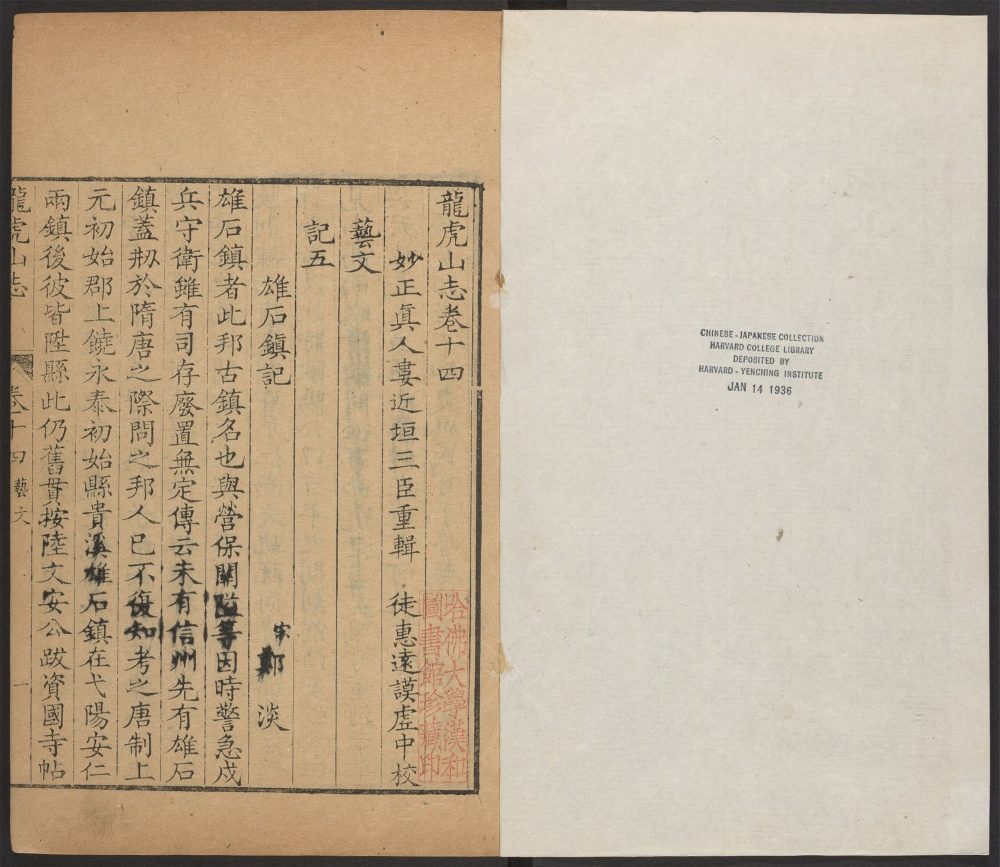 龍虎山志卷十四
妙正真人婁近垣三臣重輯 徒惠遠謨虛中校
藝文
記五
雄石鎮記
宋 鄭 淡
雄石鎮者此邦古鎮名也與營保關隘等因時警急戍
兵守衛雖有司存廢置無定傳云未有信州先有雄石
鎮蓋刱於隋唐之際問之邦人已不復知考之唐制上
元初始郡上饒永泰初始縣貴溪雄石鎮在弋陽安仁
兩鎮後彼皆陞縣此仍舊貫按陸文安公跋資國寺帖
龍虎山志 卷十四 藝文 一
哈佛大學漢和
圖書館珍藏印
CHINESE-JAPANESE COLLECTION
HARVARD COLLEGE LIBRARY
DEPOSITED BY
HARVARD-YENCHING INSTITUTE
JAN 14 1936